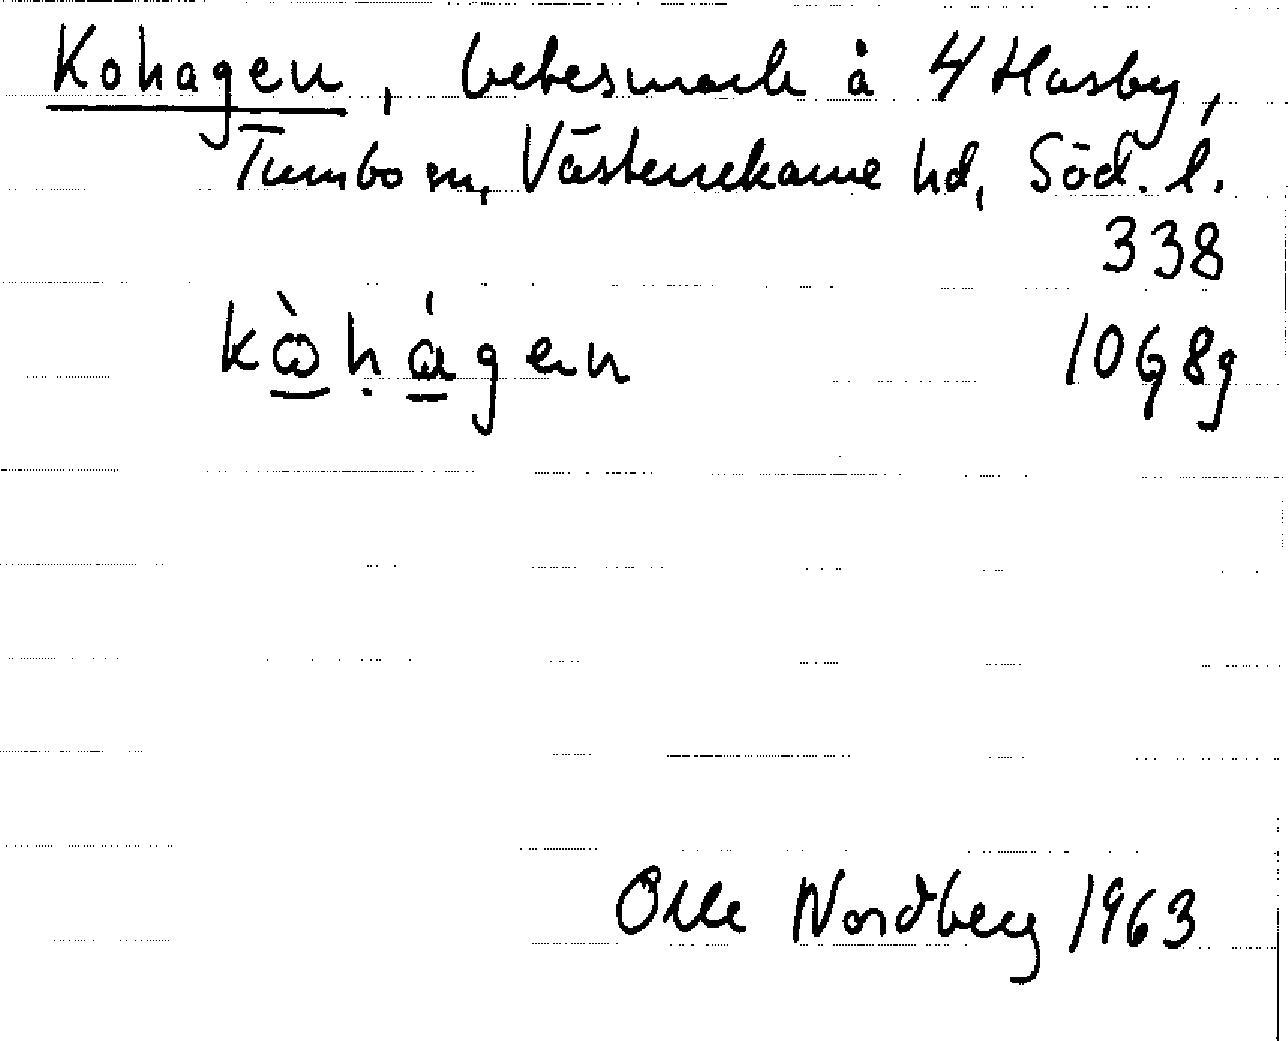 Kohagen, betesmark å 4 Husby,
Tumbo sn, Västerrekarne hd, Söd. l.
338
kòhágen 10G8g
Olle Nordberg 1963